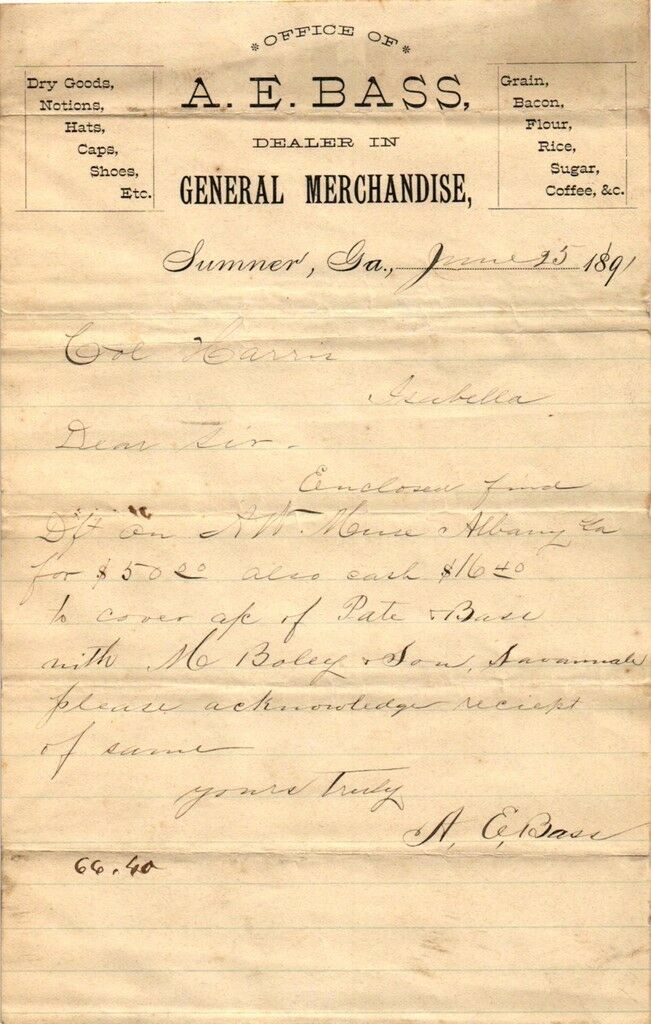 *OFFICE OF*
A. E. BASS,
DEALER IN
GENERAL MERCHANDISE,
Dry Goods,
Notions,
Hats,
Caps,
Shoes,
Etc.
Grain,
Bacon,
Flour,
Rice,
Sugar,
Coffee, &c.
Sumner, Ga., June 25 1891
Col Harris
Isabella
Dear Sir.
Enclosed find
Dft on A.W. Muse Albany Ga
for $50 00 also cash $16 40
to cover a/c of Pate & Bass
with M Boley & Son, Savannah
please acknowledge reciept
of same
yours truly
A, E, Bass
66.40